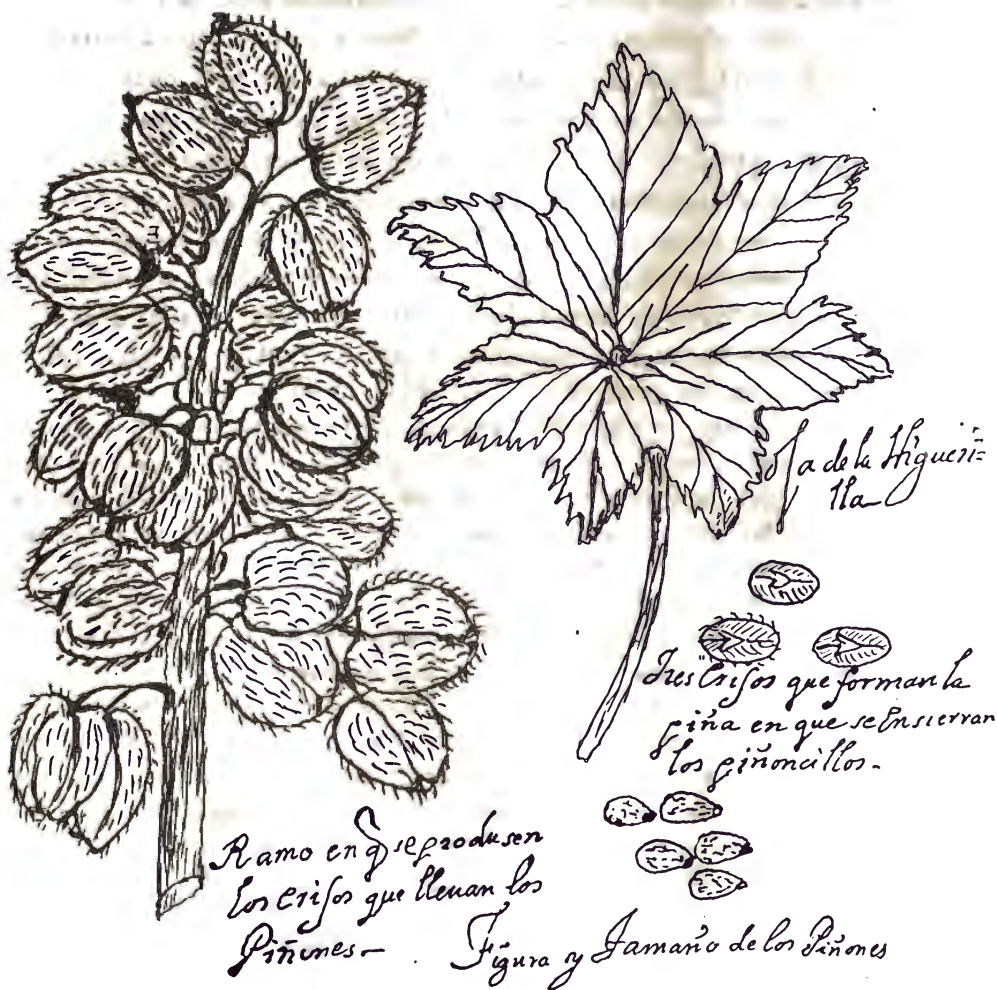 Oja de la Higueri=
lla
Tres Erisos que forman la
piña en que se Ensierran
los piñoncillos.
Ramo en q̃ se produsen
los Erisos que lleuan los
Piñones
Figura y Tamaño de los Piñones